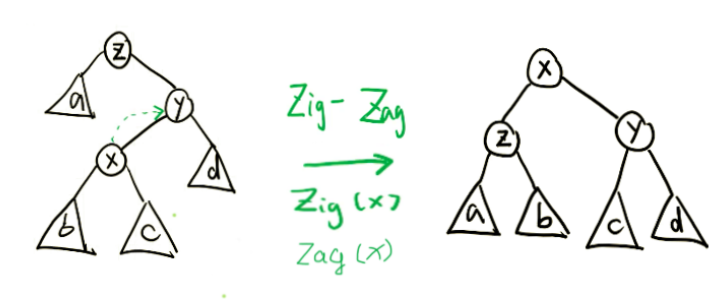 z
a
y
x
d
b
c
Zig - Zag
Zig (x)
Zag (x)
x
z
y
a
b
c
d